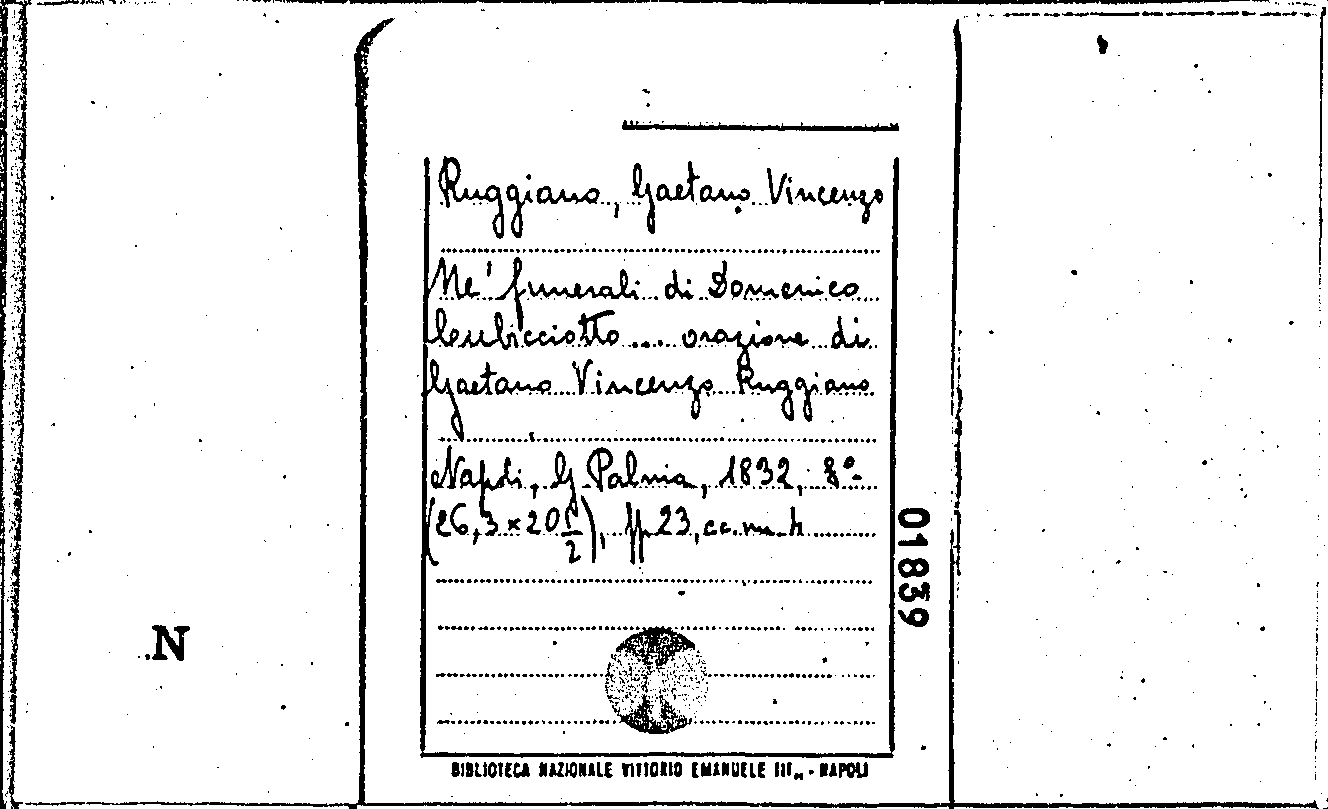 Ruggiano, Gaetano Vincenzo
Ne' funerali di Domenico
Cubicciotto ... orazione di
Gaetano Vincenzo Ruggiano
Napoli, G Palma, 1832, 8º
(26,3×20 1/2), pp 23, cc.nn.
01839
N
BIBLIOTECA NAZIONALE VITTORIO EMANUELE III - NAPOLI